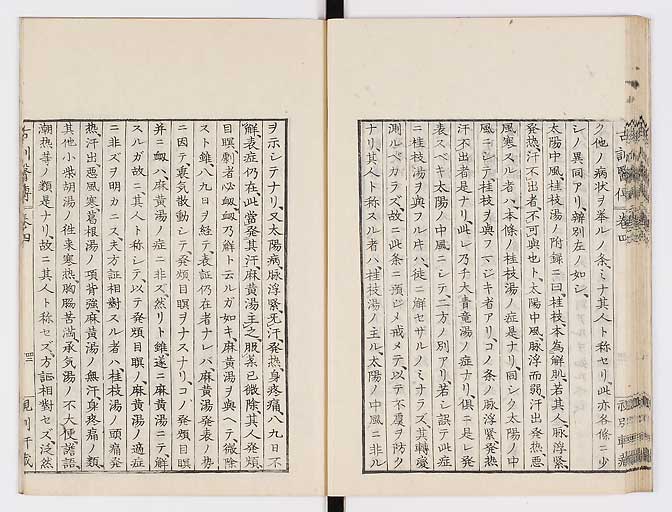 ク他ノ病状ヲ挙ルノ条ミナ其人ト称セリ此亦各條ニ少
シノ異同アリ辨別左ノ如シ
太陽中風桂枝湯ノ附録ニ曰桂枝本為解肌若其人脉浮緊
発熱汗不出者不可與也ト太陽中風脉浮而弱汗出発熱悪
風寒スル者ハ本條ノ桂枝湯ノ症ナリ同シク太陽ノ中
風ニシテ桂枝ヲ與フマジキ者アリコノ条ノ脉浮緊発熱
汗不出者是ナリ此レ乃チ大青竜湯ノ症ナリ俱ニ是レ発
表スベキ太陽ノ中風ニシテ二方ノ別アリ若シ誤テ此症
ニ桂枝湯ヲ與フル片ハ徒ニ解セサルノミナラズ其轉変
測ルベカラズ故ニ此条ニ預ジメ戒メテ以テ不虞ヲ防ク
ナリ其人ト称スル者ハ桂枝湯ノ主ル太陽ノ中風ニ非ル
ヲ示シテナリ又太陽病脉浮緊无汗発熱身疼痛八九日不
解表症仍在此當発其汗麻黄湯主之服薬已微除其人発煩
目瞑劇者必衂衂乃解ト云ルガ如キ麻黄湯ヲ與ヘテ微除
スト雖八九日ヲ経テ表証仍在者ナレバ麻黄湯発表ノ勢
ニ因テ裏気散動シテ発煩目瞑ヲナスナリコノ発煩目瞑
并ニ衂ハ麻黄湯ノ症ニ非ズ然リト雖遂ニ麻黄湯ニテ解
スルガ故ニ其人ト称シテ以テ発煩目瞑ノ麻黄湯ノ適症
ニ非ズヲ明カニス夫方証相對スル者ハ桂枝湯ノ頭痛発
熱汗出悪風寒葛根湯ノ項背強麻黄湯ノ無汗身疼痛ノ類
其他小柴胡湯ノ往来寒熱胸脇苦満承気湯ノ不大便譫語
潮熱等ノ類是ナリ故ニ其人ト称セズ方証相對セズ泛然